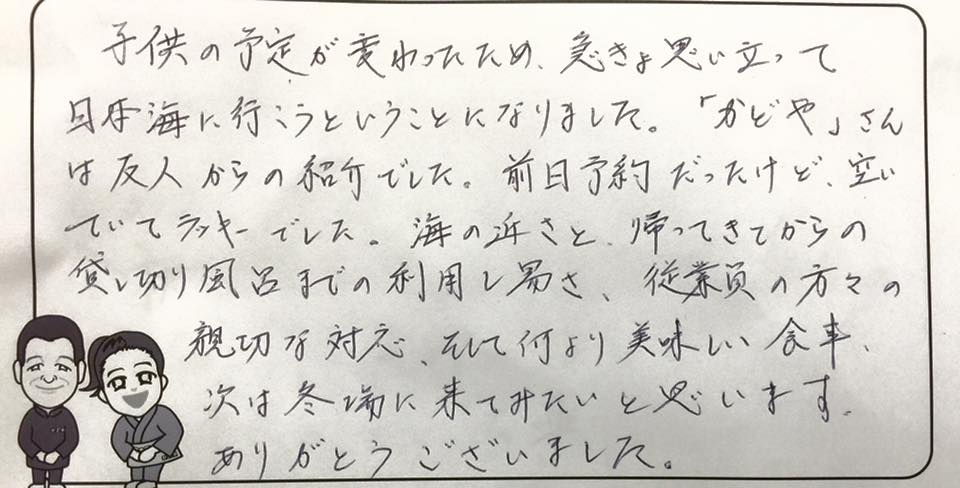 子供の予定が変わったため、急きょ思い立って
日本海に行こうということになりました。「かどや」さん
は友人からの紹介でした。前日予約だったけど、空い
ていてラッキーでした。海の近さと、帰ってきてからの
貸し切り風呂までの利用し易さ、従業員の方々の
親切な対応、そして何より美味しい食事、
次は冬場に来てみたいと思います。
ありがとうございました。